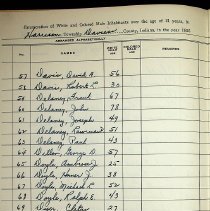 Enumeration of White and Colored Male Inhabitants over the age of 21 years, in
Harrison Township Daviess County, Indiana, in the year
ARRANGED ALPHABETICALLY
No. NAMES
57 Davis, David A. 56
58 Davis, Robert L. 30
59 Delaney, Frank 67
60 Delaney, John 78
61 Delaney, Joseph 49
62 Delaney, 51
63 Delaney, Paul 43
64 George D. 57
65 Doyle, Ambrose J. 25
66 Doyle, Homer J. 38
67 Doyle, Michael L. 52
68 Doyle, Ralph E. 43
69 27